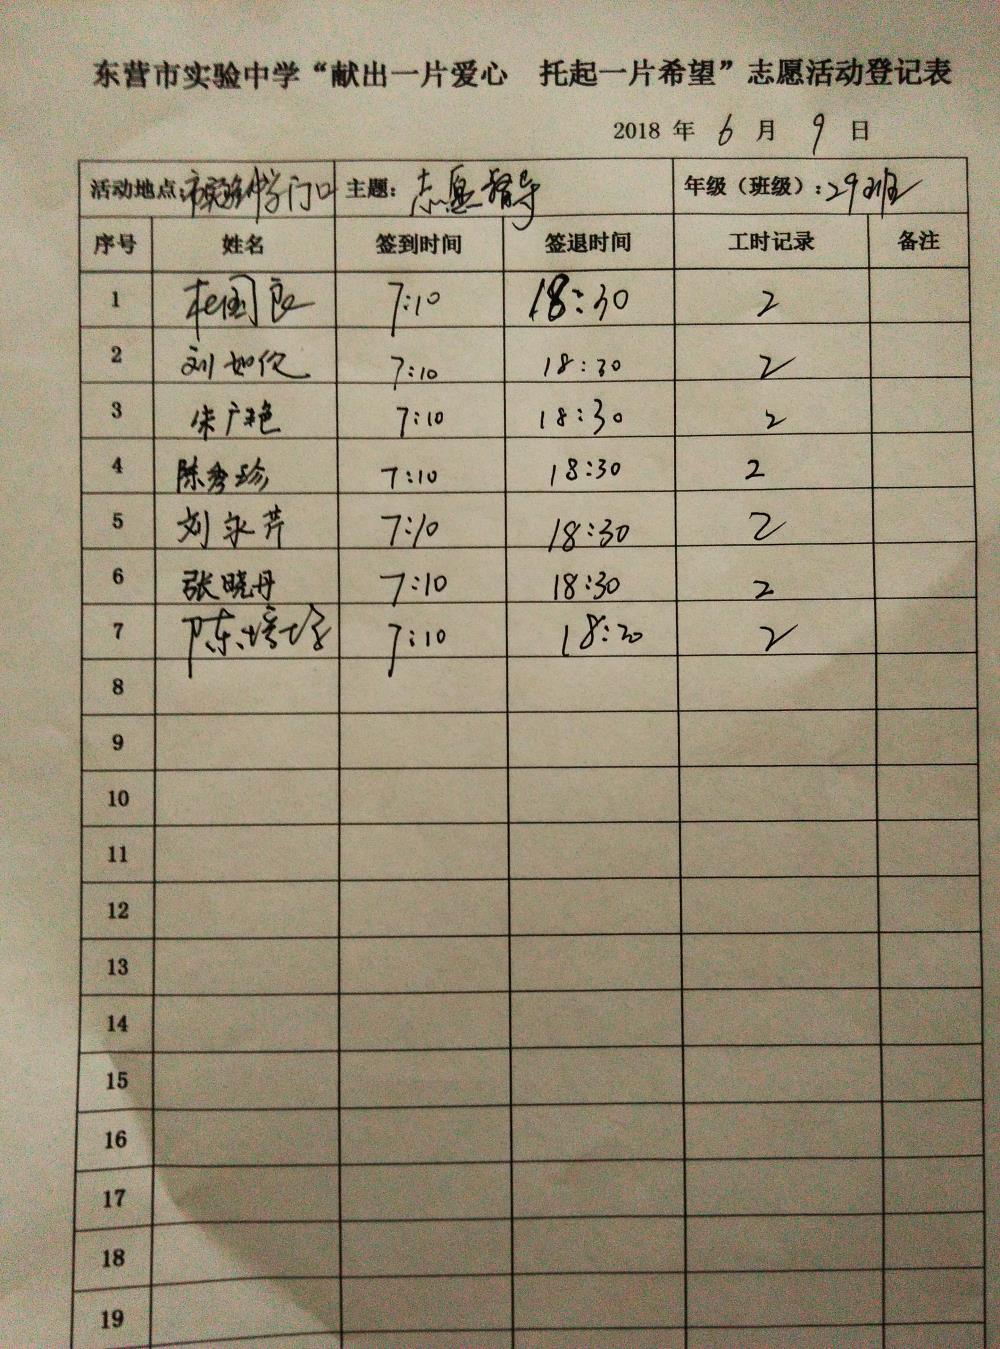 东营市实验中学“献出一片爱心 托起一片希望”志愿活动登记表
2018 年 6 月 9 日
活动地点: 市实验中学门口 主题: 志愿指导 年级（班级）: 29班
序号 姓名 签到时间 签退时间 工时记录 备注
1 杜国良 7:10 18:30 2
2 刘如仪 7:10 18:30 2
3 朱广艳 7:10 18:30 2
4 陈秀珍 7:10 18:30 2
5 刘永芹 7:10 18:30 2
6 张晓丹 7:10 18:30 2
7 陈培培 7:10 18:30 2
8
9
10
11
12
13
14
15
16
17
18
19